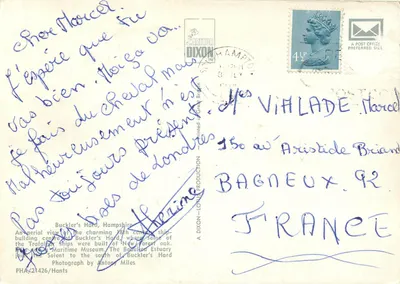 Cher Marcel.
J'espère que tu
vas bien. Moi ça va..
je fais du cheval mais
Malheureusement il n'est
Pas toujours présent.
Grosses bises de Londres
Buckler's Hard, Hampshire
Aerial view of the charming 18th
building Buckler's Hard, where some of
the Trafalgar ships were built of New Forest oak.
Maritime Museum. The Beaulieu Estuary
Solent to the south of Buckler's Hard
Photograph by Miles
PHA/21426/Hants
DIXON
A DIXON PRODUCTION
A POST OFFICE
PREFERRED SIZE
4½
VIHLADE Marcel
150 av Aristide Briand
BAGNEUX. 92.
FRANCE